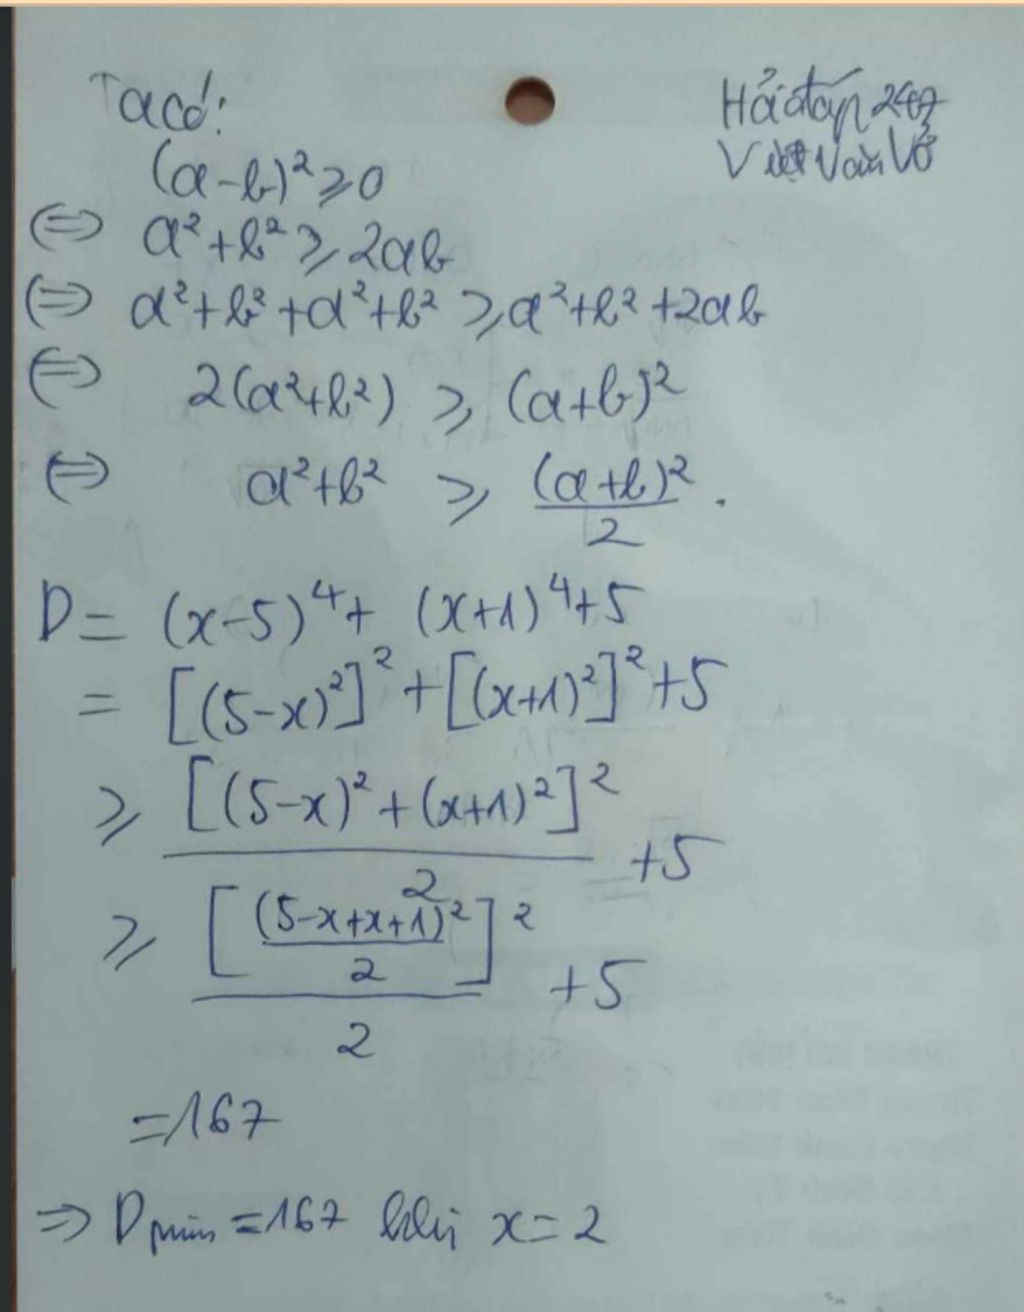 Ta có:
Hỏi đáp 247
Việt Văn Võ
(a-b)² ≥ 0
(=) a²+b² ≥ 2ab
(=) a²+b²+a²+b² ≥ a²+b²+2ab
(=) 2(a²+b²) ≥ (a+b)²
(=) a²+b² ≥ (a+b)²/2.
D = (x-5)⁴ + (x+1)⁴+5
= [(5-x)²]² + [(x+1)²]²+5
≥ [(5-x)²+(x+1)²]²/2 +5
≥ [(5-x+x+1)²/2]²/2 +5
=167
=> D min =167 khi x=2